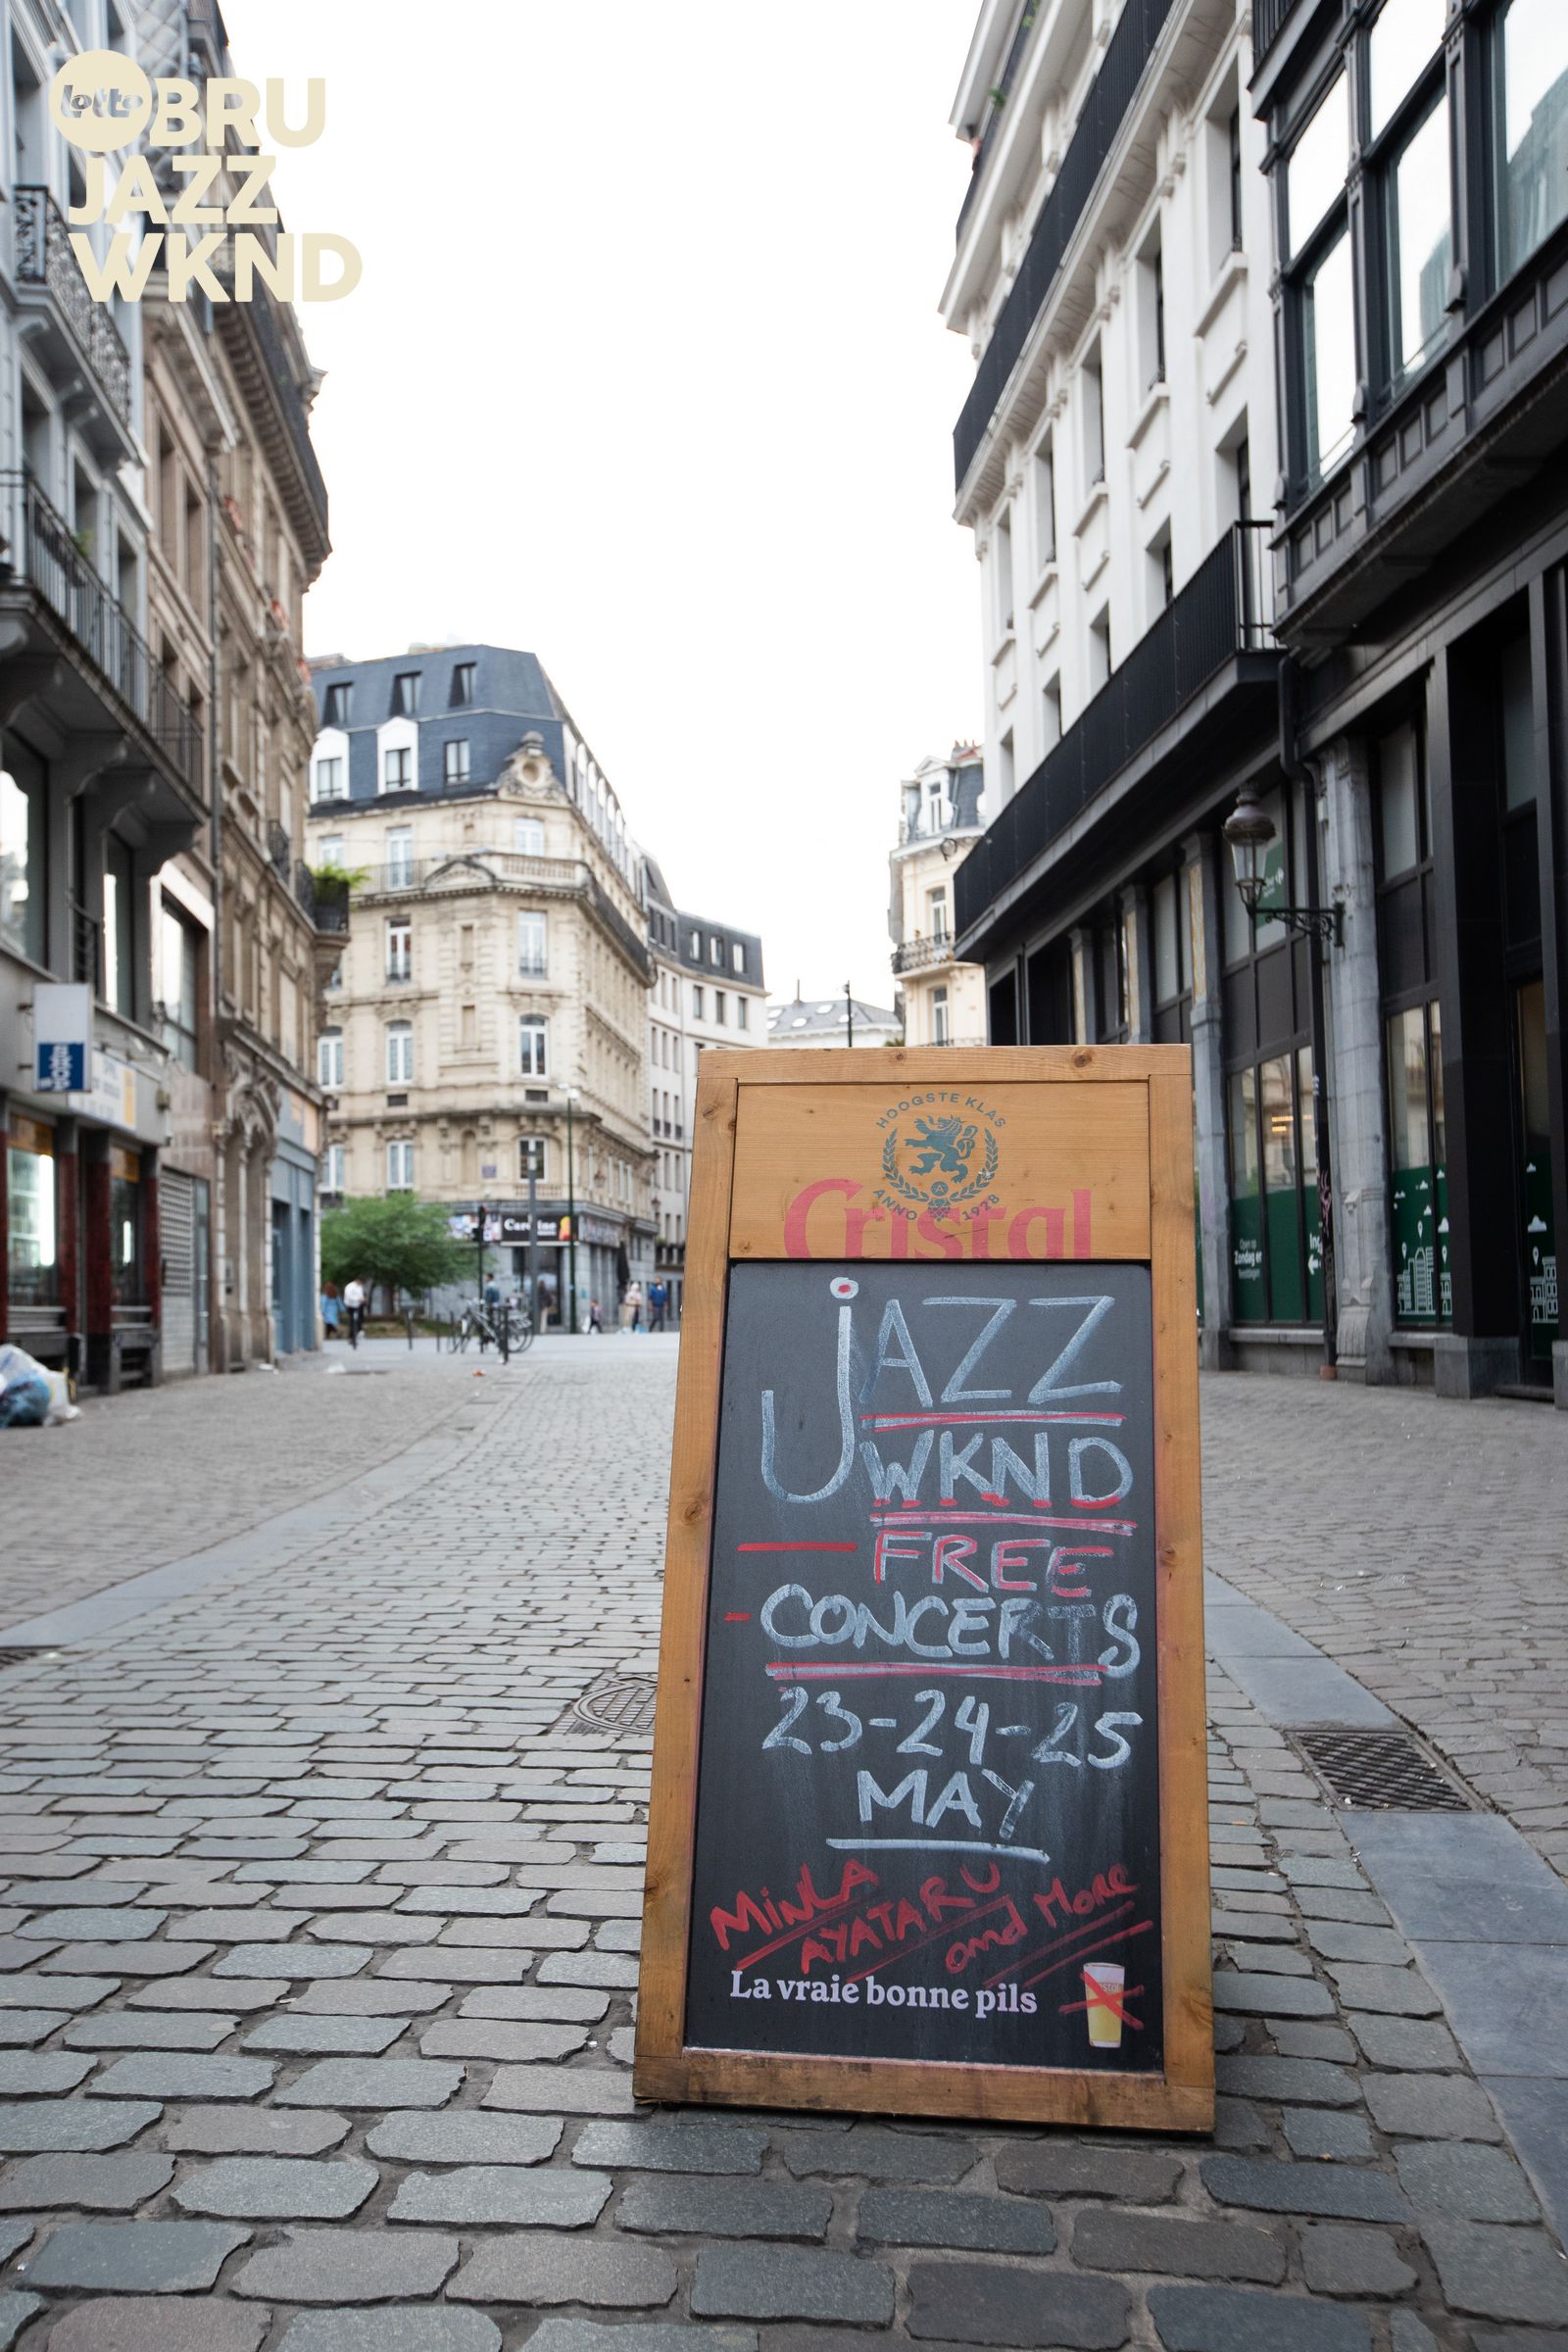 lotto BRU
JAZZ
WKND
Cardine
HOOGSTE KLAS
ANNO 1928
Cristal
jAZZ
WKND
FREE
CONCERTS
23-24-25
MAY
MiNLA
AYATARU
and More
La vraie bonne pils
Open op
Zondag